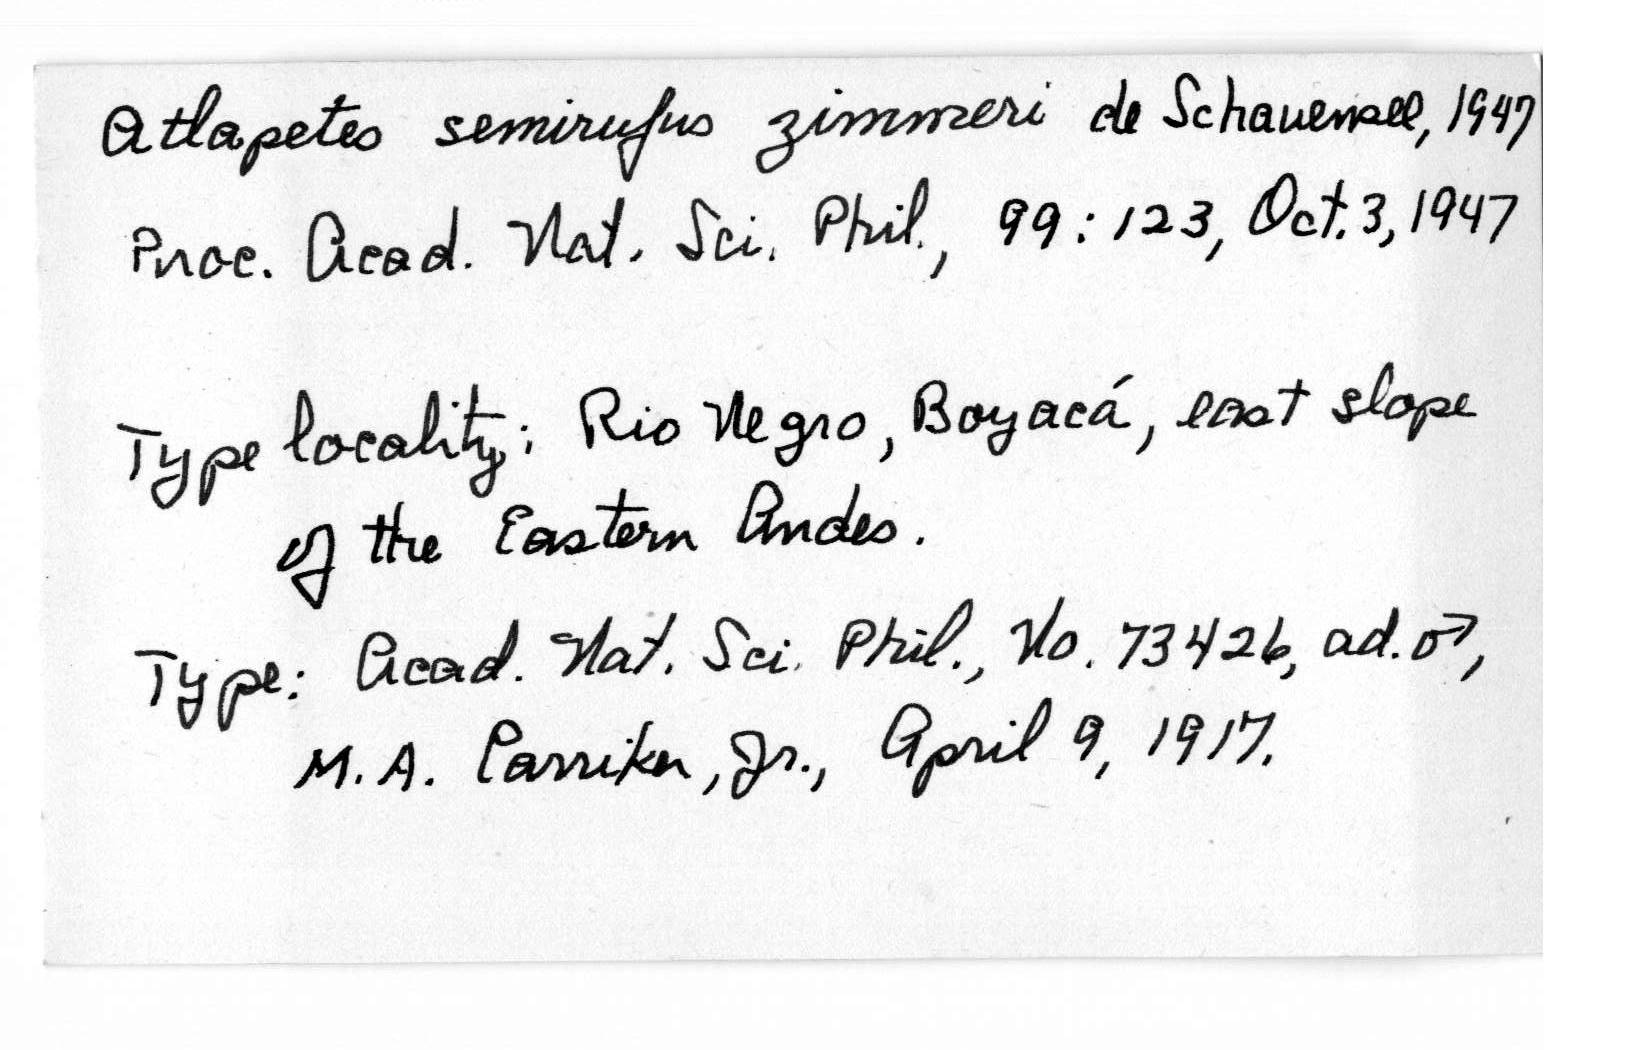 Atlapetes semirufus zimmeri de Schauensee, 1947
Proc. Acad. Nat. Sci. Phil., 99:123, Oct. 3, 1947
Type locality: Rio Negro, Boyacá, east slope
of the Eastern Andes.
Type: Acad. Nat. Sci. Phil., No. 73426, ad. ♂,
M. A. Carriker, Jr., April 9, 1917.